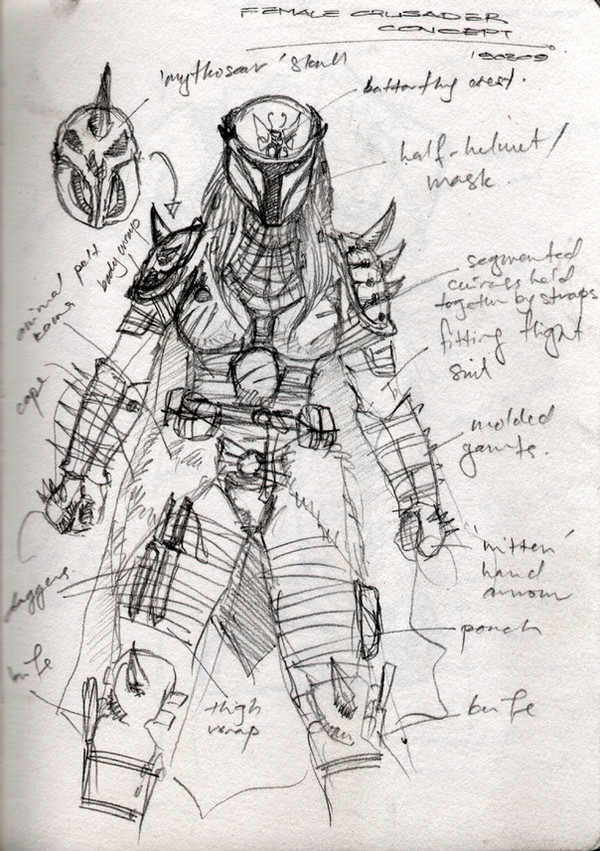 FEMALE CRUSADER
CONCEPT
190309
'mythosaur' skull
butterfly crest.
half-helmet/
mask.
body wrap
animal pelt
cape
segmented
cuirass held
together by straps
fitting flight
suit
molded
gaunts.
'mitten'
hand
armour
daggers
pouch
knife
thigh
wrap
knife